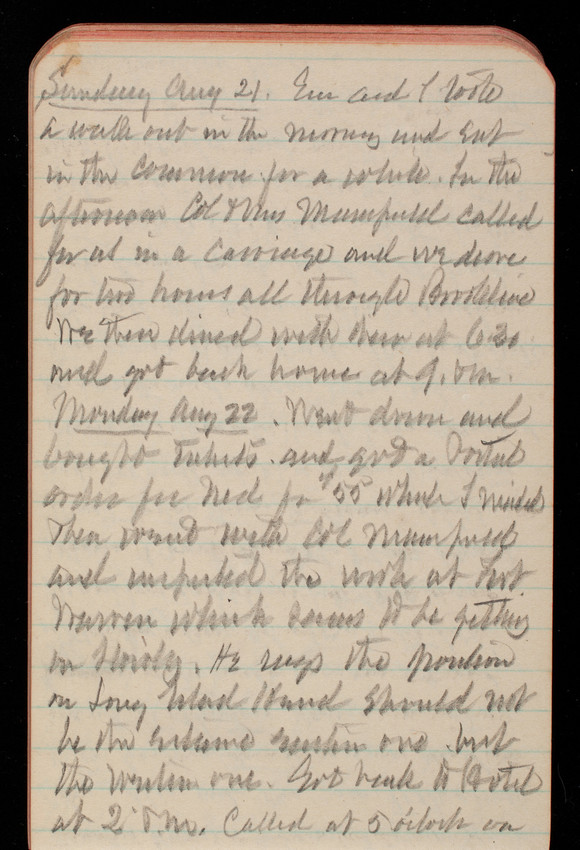 Sunday Aug 21. Em and I took
a walk out in the morning and sat
in the Common for a while. In the
afternoon Col & Mrs Mansfield called
for us in a Carriage and we drove
for two hours all through Brookline
We then dined with them at 6.30
and got back home at 9. P.M.
Monday Aug 22. Went down and
bought tickets and got a Postal
order for Ned for $55 which I mailed
Then went with Col Mansfield
and inspected the work at Fort
Warren which seems to be getting
on slowly. He says the position
on Long Island Head should not
be the extreme eastern one but
the western one. Got back to Hotel
at 2 P.M. Called at 5 o'clock on